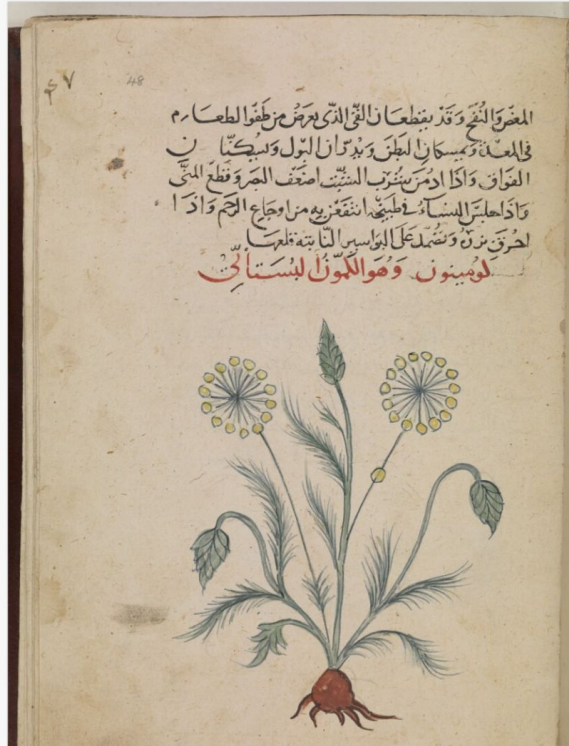 ٤٧
48
المغص والنفخ وقد يقطعان القئ الذى يعرض من طفو الطعام
فى المعدة ويمسكان البطن ويدران البول ويسكنان
الفواق واذا ادمن شرب الشبت اضعف البصر وقطع المنى
واذا جلس النساء فى طبيخه انتفعن به من اوجاع الرحم واذا
احرق بزره وتضمد على البواسير الناتية قلعها
لومينون وهو الكمون البستانى